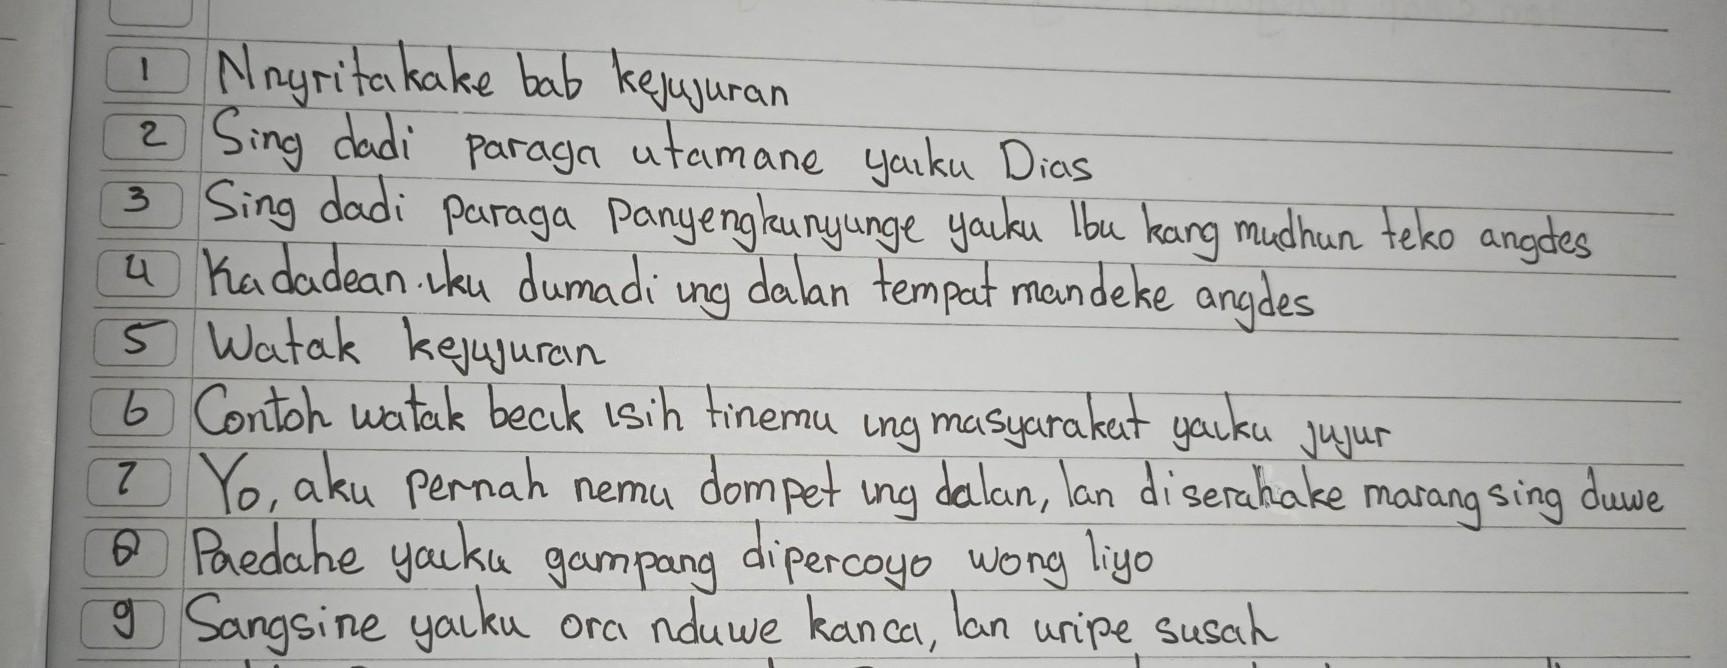 1 Nnyritakake bab kejujuran
2 Sing dadi paraga utamane yaiku Dias
3 Sing dadi paraga panyengkunyunge yaiku Ibu kang mudhun teko angdes
4 Kadadean iku dumadi ing dalan tempat mandeke angdes
5 Watak kejujuran
6 Contoh watak becik isih tinemu ing masyarakat yaiku jujur
7 Yo, aku pernah nemu dompet ing dalan, lan diserahake marang sing duwe
8 Paedahe yaiku gampang dipercoyo wong liyo
9 Sangsine yaiku ora nduwe kanca, lan uripe susah